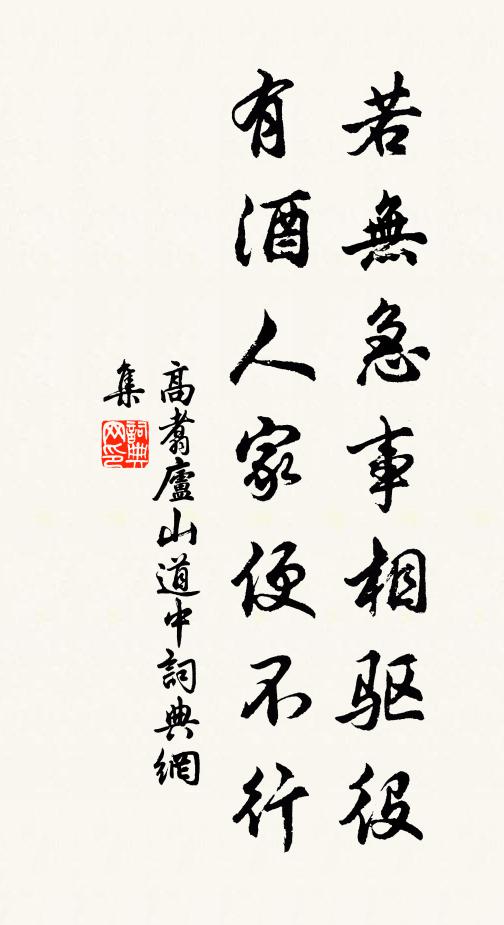 若無急事相驱役
有酒人家便不行
高翥廬山道中詞典網
集
詞典网印